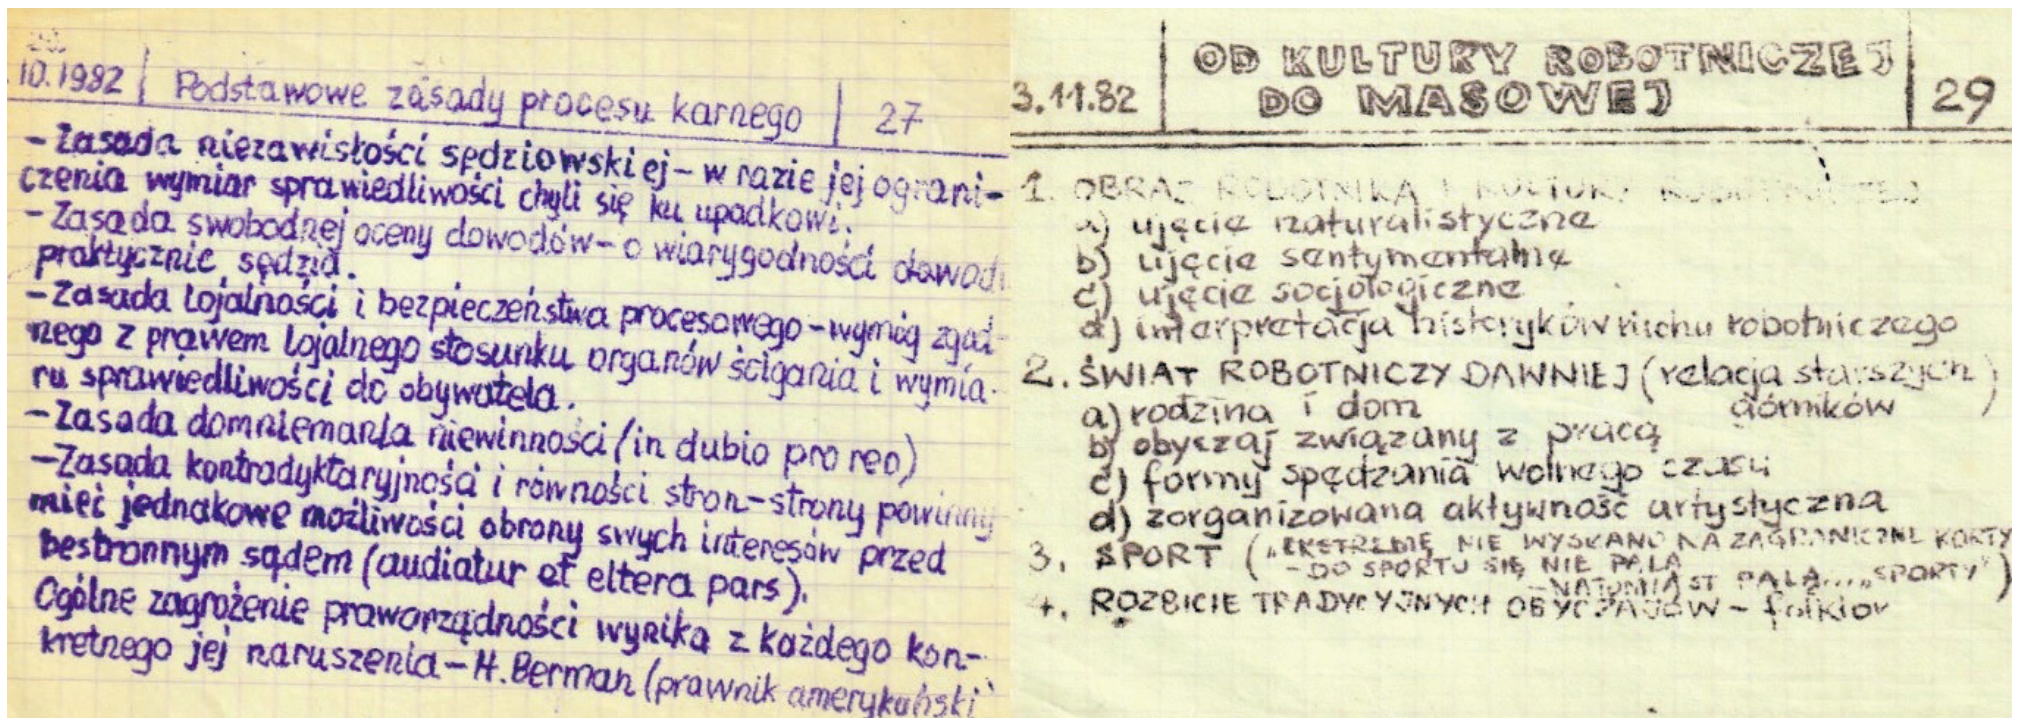 10.1982 | Podstawowe zasady procesu karnego | 27
- Zasada niezawisłości sędziowskiej - w razie jej ograni-
czenia wymiar sprawiedliwości chyli się ku upadkowi.
- Zasada swobodnej oceny dowodów - o wiarygodności dowod
praktycznie sędzia.
- Zasada lojalności i bezpieczeństwa procesowego - wymóg zgod-
nego z prawem lojalnego stosunku organów ścigania i wymia-
ru sprawiedliwości do obywatela.
- Zasada domniemania niewinności (in dubio pro reo)
- Zasada kontradyktaryjności i równości stron - strony powinny
mieć jednakowe możliwości obrony swych interesów przed
bestronnym sądem (audiatur et eltera pars).
Ogólne zagrożenie praworządności wynika z każdego kon-
kretnego jej naruszenia - H. Berman (prawnik amerykański
3.11.82 | OD KULTURY ROBOTNICZEJ | 29
DO MASOWEJ
1. OBRAZ ROBOTNIKA I KULTURY ROBOTNICZEJ
a) ujęcie naturalistyczne
b) ujęcie sentymentalne
c) ujęcie socjologiczne
d) interpretacja historyków ruchu robotniczego
2. ŚWIAT ROBOTNICZY DAWNIEJ (relacja starszych
górników)
a) rodzina i dom
b) obyczaj związany z pracą
c) formy spędzania wolnego czasu
d) zorganizowana aktywność artystyczna
3. SPORT („EKSTREMĘ NIE WYSŁANO NA ZAGRANICZNE KORTY
- DO SPORTU SIĘ NIE PALĄ
- NATOMIAST PALĄ... „SPORTY")
4. ROZBICIE TRADYCYJNYCH OBYCZAJÓW - folklor